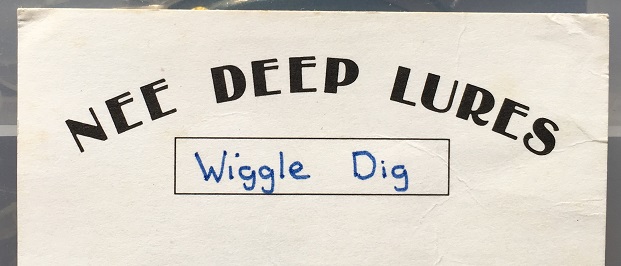 NEE DEEP LURES
Wiggle Dig